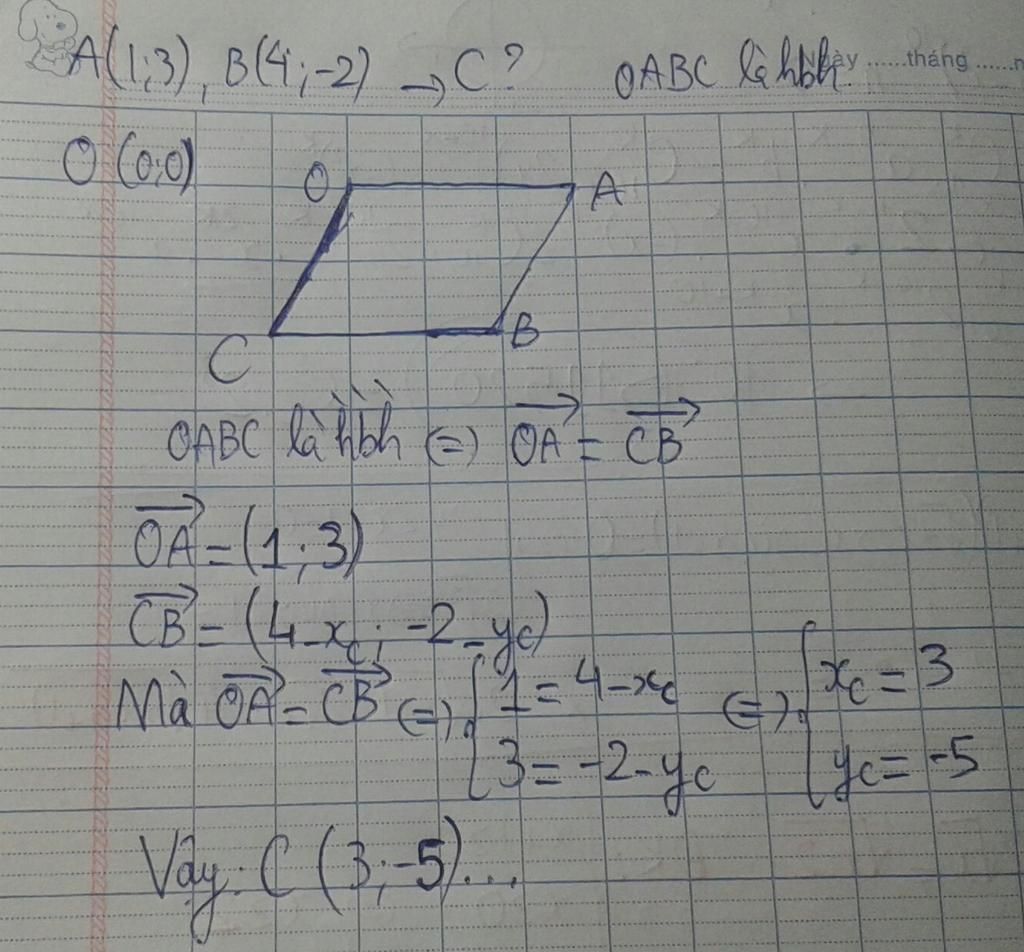 A(1;3), B(4;-2) → C? OABC là hbh.
ày ......tháng ......n
O (0;0)
O
A
C
B
OABC là hbh (=) OA = CB
OA = (1;3)
CB = (4-xc; -2-yc)
Mà OA = CB (=) { 1 = 4-xc (=) { xc = 3
3 = -2-yc yc = -5
Vậy: C (3;-5)...